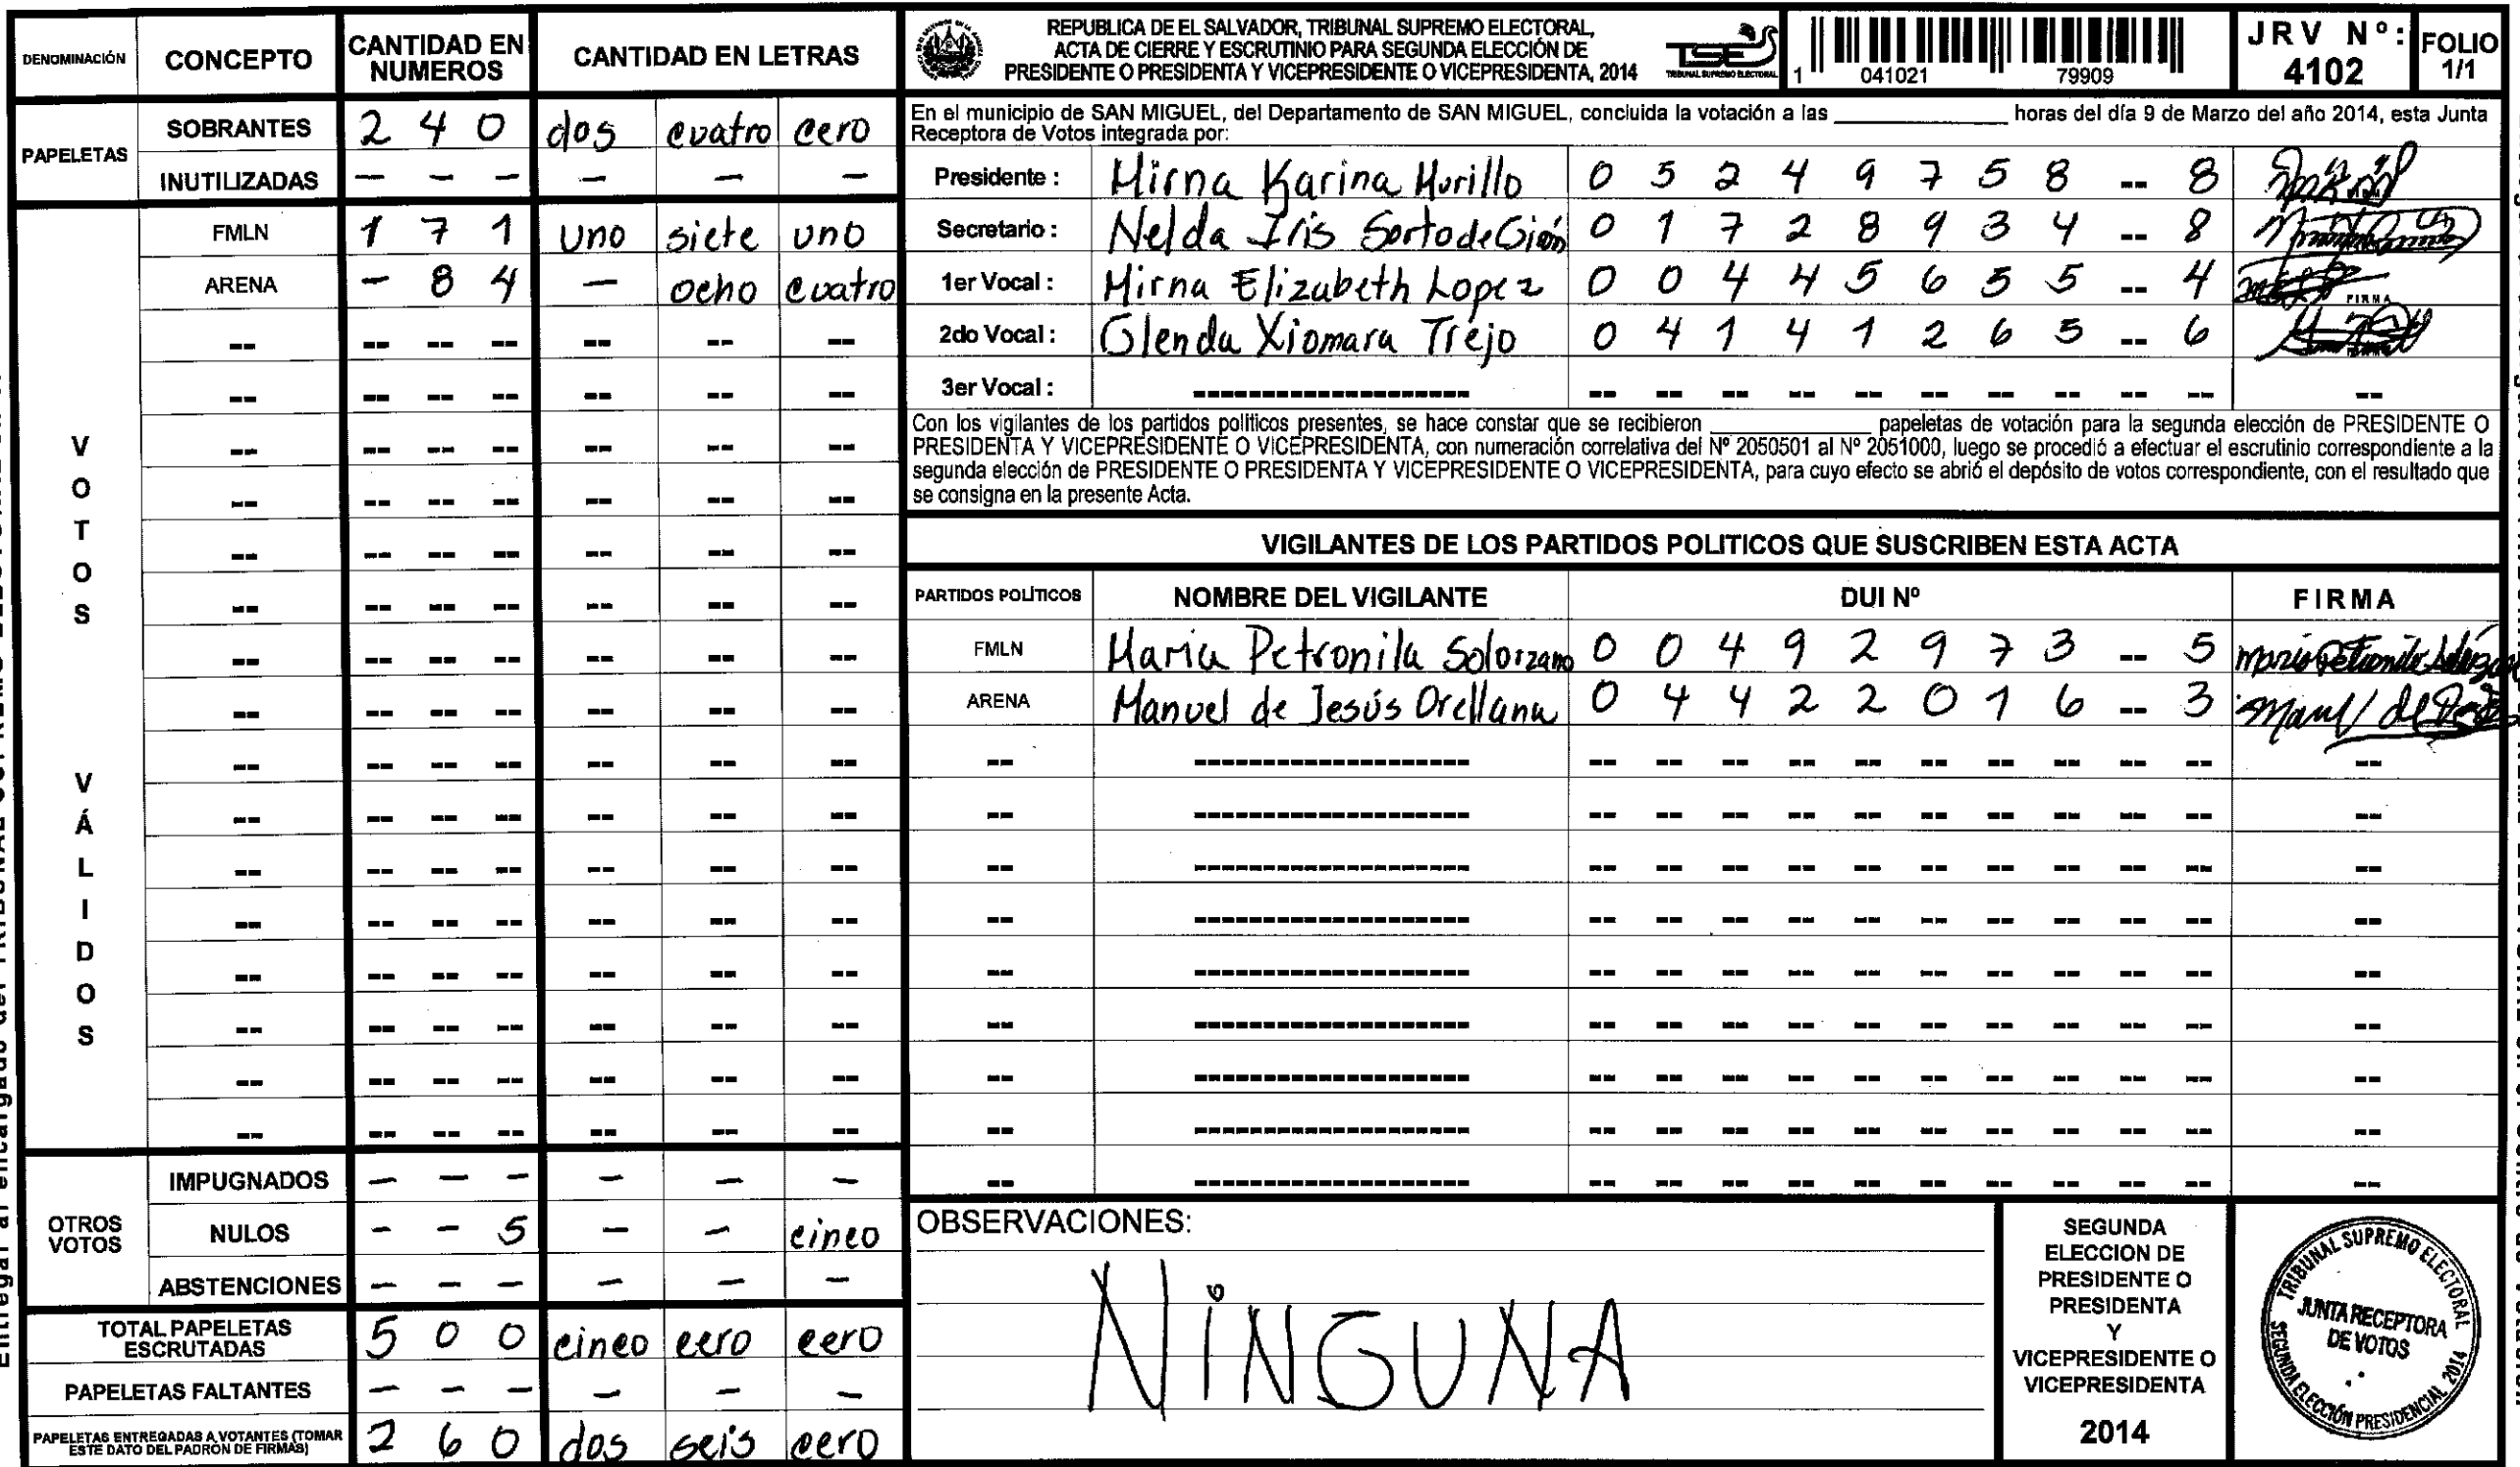 DENOMINACIÓN CONCEPTO CANTIDAD EN NUMEROS CANTIDAD EN LETRAS
PAPELETAS
SOBRANTES 2 4 0 dos cuatro cero
INUTILIZADAS — — — — — —
VOTOS VÁLIDOS
FMLN 1 7 1 uno siete uno
ARENA - 8 4 — ocho cuatro
OTROS VOTOS
IMPUGNADOS — — — — — —
NULOS - - 5 — — cinco
ABSTENCIONES — — — — — —
TOTAL PAPELETAS ESCRUTADAS 5 0 0 cinco cero cero
PAPELETAS FALTANTES — — — — — —
PAPELETAS ENTREGADAS A VOTANTES (TOMAR ESTE DATO DEL PADRÓN DE FIRMAS) 2 6 0 dos seis cero
REPUBLICA DE EL SALVADOR, TRIBUNAL SUPREMO ELECTORAL,
ACTA DE CIERRE Y ESCRUTINIO PARA SEGUNDA ELECCIÓN DE
PRESIDENTE O PRESIDENTA Y VICEPRESIDENTE O VICEPRESIDENTA, 2014
TSE
TRIBUNAL SUPREMO ELECTORAL
1 041021 79909
JRV Nº: 4102
FOLIO 1/1
En el municipio de SAN MIGUEL, del Departamento de SAN MIGUEL, concluida la votación a las ______ horas del día 9 de Marzo del año 2014, esta Junta
Receptora de Votos integrada por:
Presidente : Mirna Karina Murillo 0 5 2 4 9 7 5 8 -- 8
Secretario : Nelda Iris Sorto de Girón 0 1 7 2 8 9 3 4 -- 8
1er Vocal : Mirna Elizabeth Lopez 0 0 4 4 5 6 5 5 -- 4
FIRMA
2do Vocal : Glenda Xiomara Trejo 0 4 1 4 1 2 6 5 -- 6
3er Vocal :
Con los vigilantes de los partidos políticos presentes, se hace constar que se recibieron ______ papeletas de votación para la segunda elección de PRESIDENTE O
PRESIDENTA Y VICEPRESIDENTE O VICEPRESIDENTA, con numeración correlativa del Nº 2050501 al Nº 2051000, luego se procedió a efectuar el escrutinio correspondiente a la
segunda elección de PRESIDENTE O PRESIDENTA Y VICEPRESIDENTE O VICEPRESIDENTA, para cuyo efecto se abrió el depósito de votos correspondiente, con el resultado que
se consigna en la presente Acta.
VIGILANTES DE LOS PARTIDOS POLITICOS QUE SUSCRIBEN ESTA ACTA
PARTIDOS POLÍTICOS NOMBRE DEL VIGILANTE DUI Nº FIRMA
FMLN Maria Petronila Solorzano 0 0 4 9 2 9 7 3 -- 5
ARENA Manuel de Jesús Orellana 0 4 4 2 2 0 1 6 -- 3
OBSERVACIONES:
NINGUNA
SEGUNDA
ELECCION DE
PRESIDENTE O
PRESIDENTA
Y
VICEPRESIDENTE O
VICEPRESIDENTA
2014
TRIBUNAL SUPREMO ELECTORAL
JUNTA RECEPTORA
DE VOTOS
SEGUNDA ELECCIÓN PRESIDENCIAL 2014